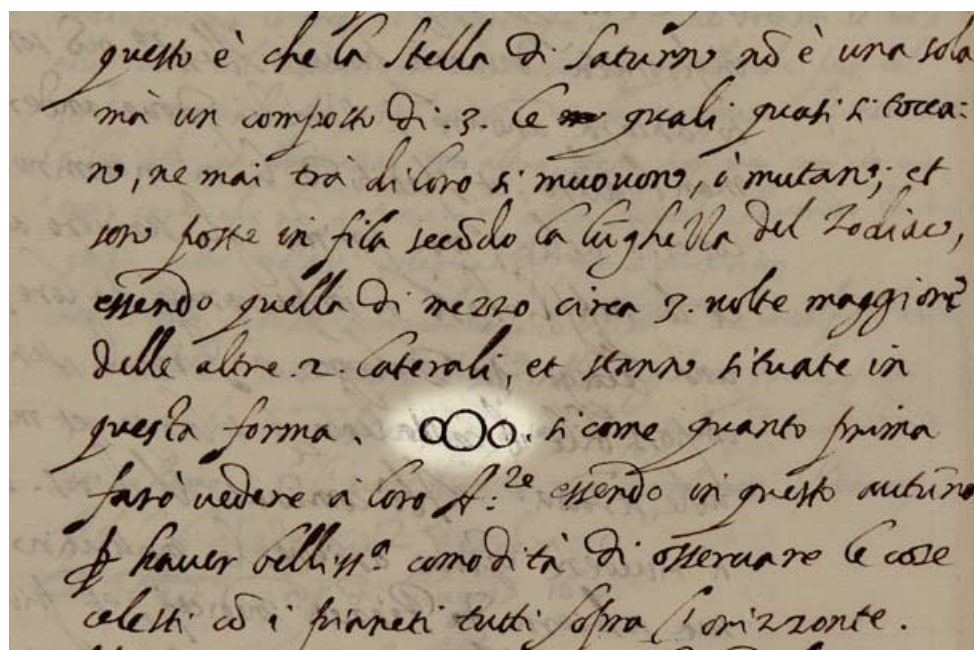 questo è che la Stella di Saturno nõ è una sola
mà un composto di .3. le quali quasi si tocca:
no, ne mai trà di loro si muovono, ò mutano; et
sono poste in fila secõdo la lũghezza del Zodiaco,
essendo quella di mezzo circa 3. volte maggiore
delle altre .2. laterali, et stanno situate in
questa forma. si come quanto prima
farò vedere à loro A.^ze essendo in questo autũno
ꝑ haver belliss.^a comodità di osservare le cose
celesti cõ i pianeti tutti sopra l'orizzonte.